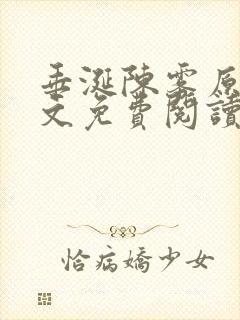 垂涎陳霧原
文免費閱讀
恰病嬌少女